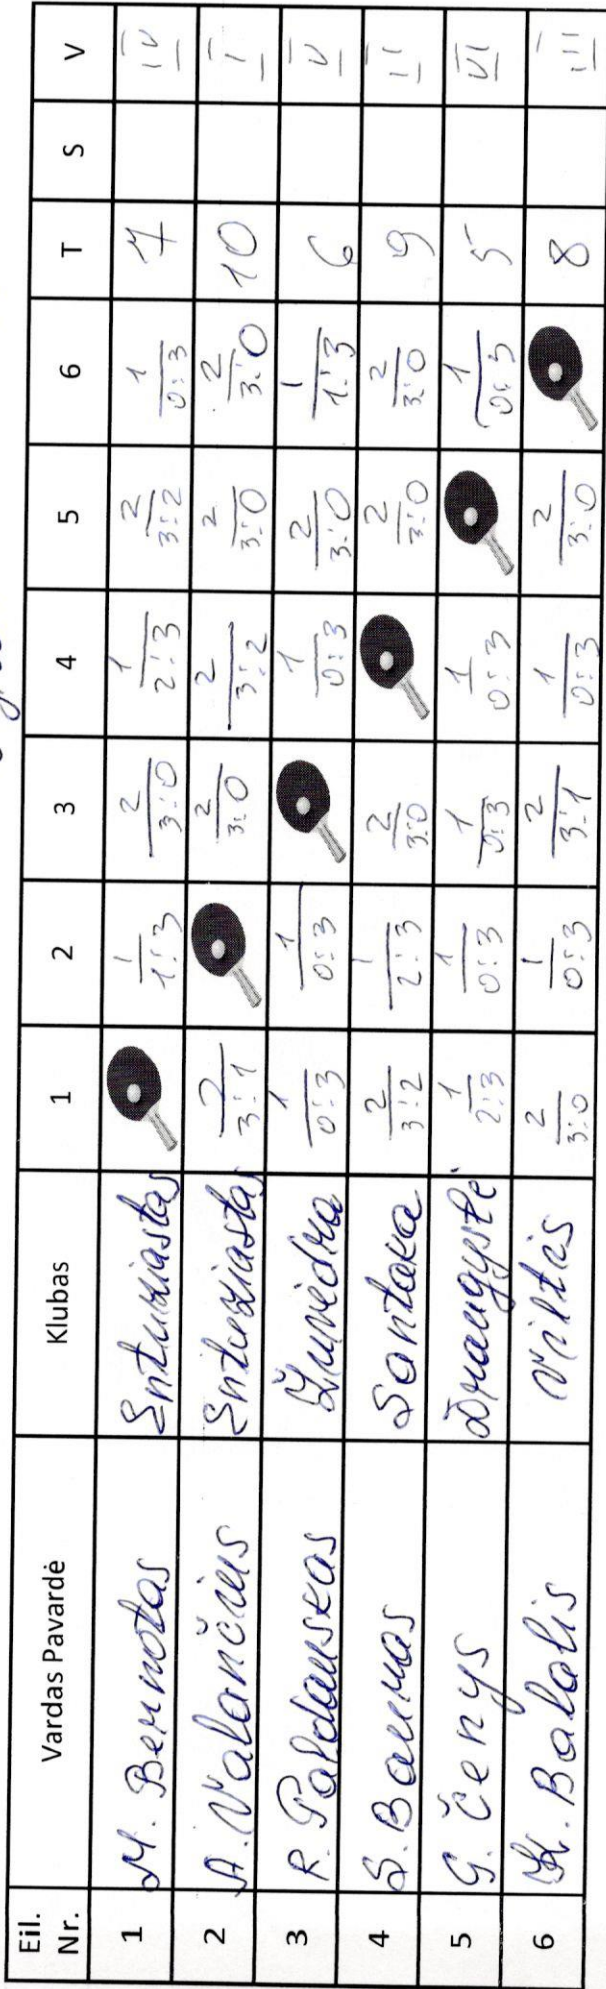 Eil. Nr. Vardas Pavardė Klubas 1 2 3 4 5 6 T S V
1 M. Bernotas Entuziastas 1 1:3 2 3:0 1 2:3 2 3:2 1 0:3 7 IV
2 A. Valančius Entuziastas 2 3:1 2 3:0 2 3:2 2 3:0 2 3:0 10 I
3 R. Paldauskas Žuvėdra 1 0:3 1 0:3 1 0:3 2 3:0 1 1:3 6 V
4 S. Baumas Santaka 2 3:2 1 2:3 2 3:0 2 3:0 2 3:0 9 II
5 G. Čenys Draugystė 1 2:3 1 0:3 1 0:3 1 0:3 1 0:3 5 VI
6 K. Balalis Viltis 2 3:0 1 0:3 2 3:1 1 0:3 2 3:0 8 III